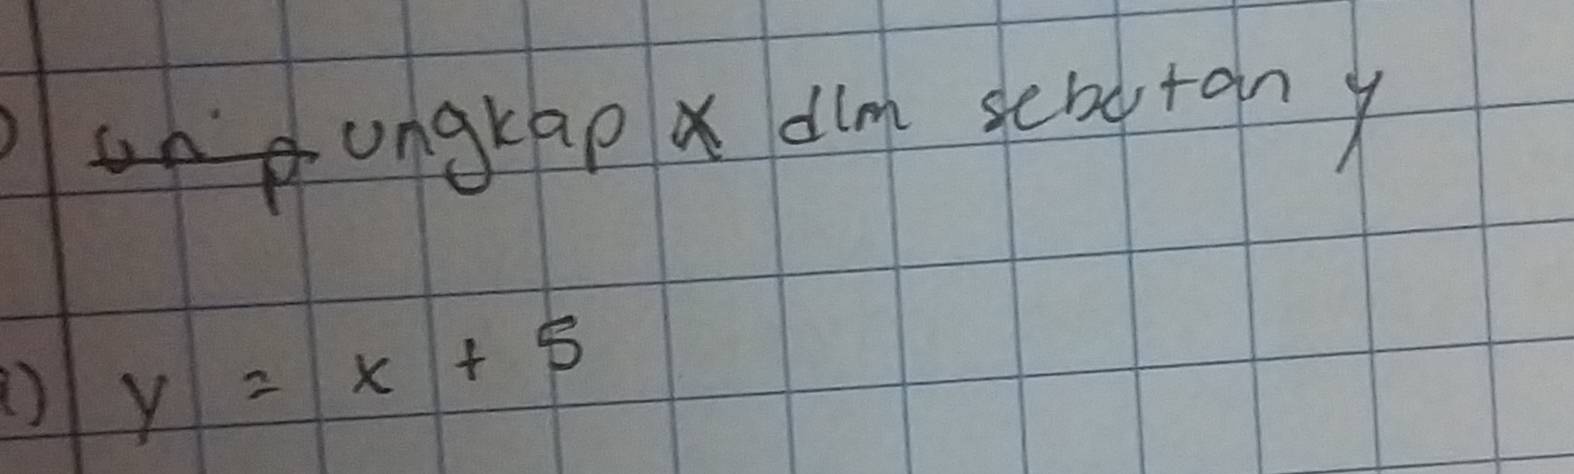 ) ungkap x dlm sebutan y
) y = x + 5